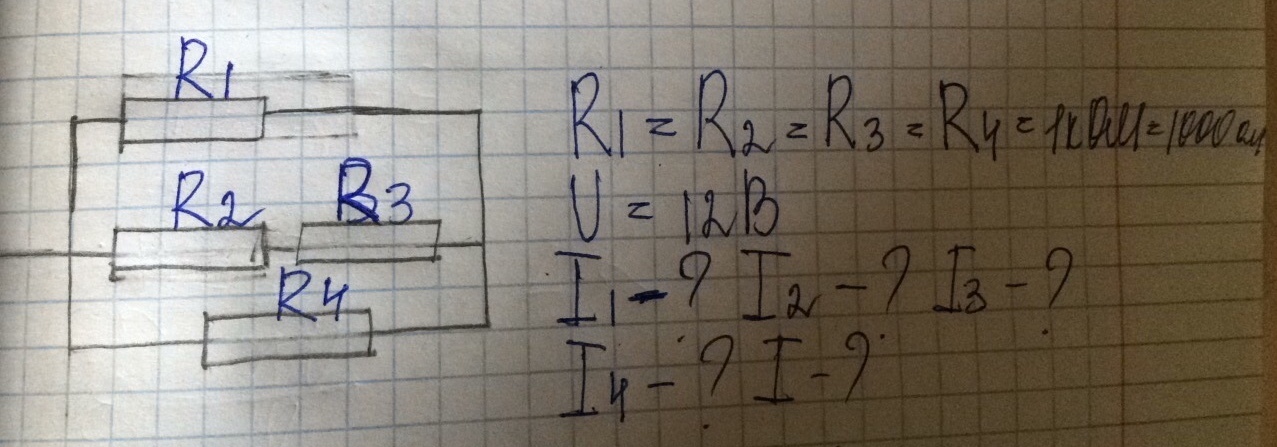 R1
R2 R3
R4
R1 = R2 = R3 = R4 = 1кОм = 1000 ом
U = 12В
I1 - ? I2 - ? I3 - ?
I4 - ? I - ?